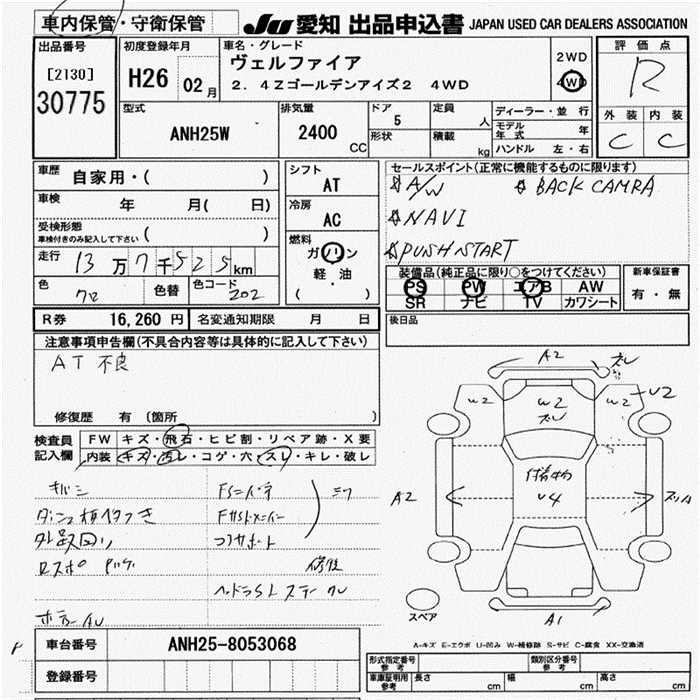 車内保管・守衛保管
JU 愛知 出品申込書 JAPAN USED CAR DEALERS ASSOCIATION
出品番号
[2130]
30775
初度登録年月
H26 02月
車名・グレード
ヴェルファイア
2.4Zゴールデンアイズ2 4WD
2WD
4WD
評価点
R
外装 内装
C C
型式
ANH25W
排気量
2400 CC
ドア 5
形状
定員 人
積載 kg
ディーラー・並行
モデル年式 年
ハンドル 左・右
車歴 自家用・( )
車検 年 月( 日)
受検形態
車検付きのみ記入して下さい ( )
走行 13万7千525km
色 クロ 色替 色コード 202
シフト
AT
冷房
AC
燃料
ガソリン
軽・油
( )
セールスポイント(正常に機能するものに限ります)
A/W BACK CAMRA
NAVI
PUSH START
装備品(純正品に限り○をつけてください)
PS PW エアB AW
SR ナビ TV カワシート
新車保証書
有・無
R券 16,260円 名変通知期限 月 日
後日品
注意事項申告欄(不具合内容等は具体的に記入して下さい)
AT 不良
修復歴 有 (箇所 )
検査員記入欄
FW キズ・飛石・ヒビ割・リペア跡・X要
内装 キズ・汚レ・コゲ・穴・スレ・キレ・破レ
キバミ
コアサポート
修復
A2 ズレ
W2 W2 U2
ズレ
U4
A2
A1
スペア
A-キズ E-エクボ U-凹み W-補修跡 S-サビ C-腐食 XX-交換済
車台番号 ANH25-8053068
登録番号
形式指定番号 参考
類別区分番号 参考
車庫証明用 参考 長さ cm 幅 cm 高さ cm